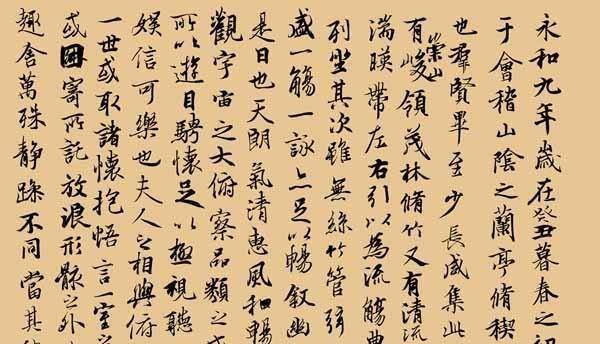 永和九年歲在癸丑暮春之初
于會稽山陰之蘭亭脩禊
也羣賢畢至少長咸集此
有崇山峻領茂林脩竹又有清流
湍暎帶左右引以為流觴曲
列坐其次雖無絲竹管弦
盛一觴一詠亦足以暢敘幽
是日也天朗氣清惠風和暢
觀宇宙之大俯察品類之盛
所以遊目騁懷足以極視聽
娛信可樂也夫人之相與俯
一世或取諸懷抱悟言一室之
或因寄所託放浪形骸之外
趣舍萬殊靜躁不同當其